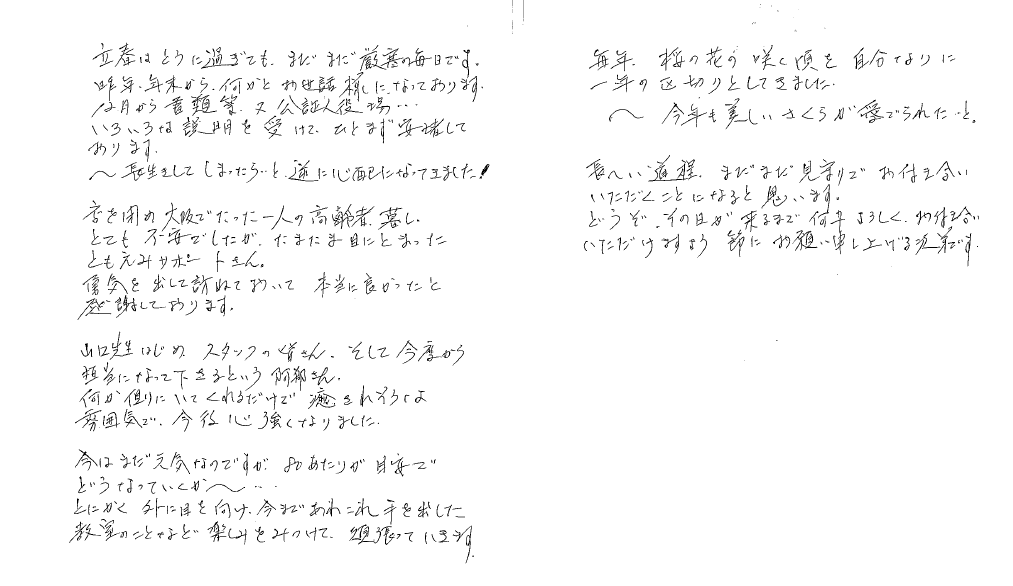 立春はとうに過ぎても、まだまだ厳寒の毎日です。
昨年、年末から、何かとお世話様になっております。
12月から書類等、又公証人役場…
いろいろな説明を受けて、ひとまず安堵して
おります。
〜長生きしてしまったら…と、逆に心配になってきました!
店を閉め大阪でたった一人の高齢者暮し。
とても不安でしたが、たまたま目にとまった
ともえみサポートさん。
勇気を出して訪ねておいて本当に良かったと
感謝しております。
山口先生はじめ、スタッフの皆さん、そして今度から
担当になって下さるという阿部さん。
何か傍にいてくれるだけで癒されそうな
雰囲気で、今後心強くなりました。
今はまだ元気なのですが、80あたりが目安で
どうなっていくか〜…
とにかく外に目を向け、今まであれこれ手を出した
教室のことなど楽しみをみつけて、頑張っていきます。
毎年、桜の花の咲く頃を自分なりに
一年の区切りとしてきました。
〜今年も美しいさくらが愛でられた…と。
長〜い道程、まだまだ見守りでお付き合い
いただくことになると思います。
どうぞ、その日が来るまで何卒よろしく、お付き合い
いただけますよう 節にお願い申し上げる次第です。